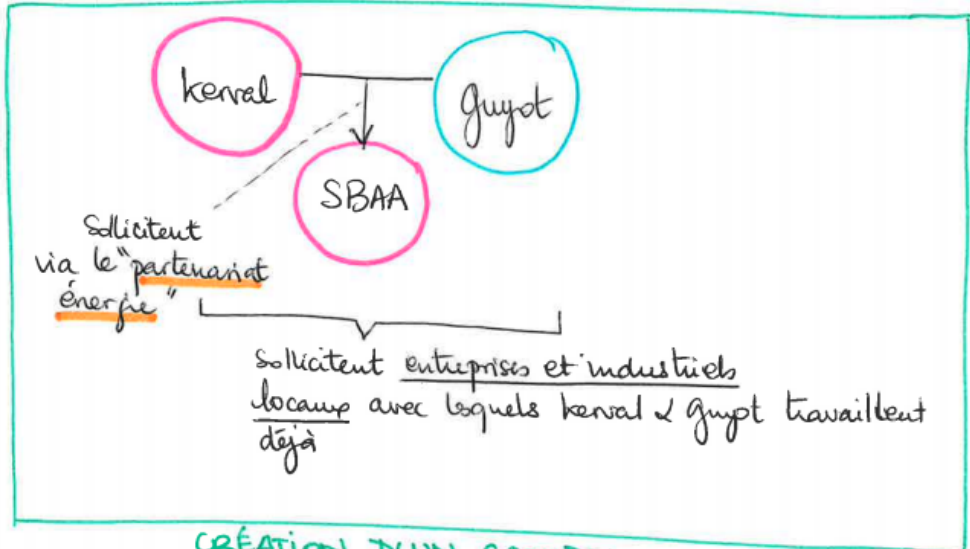 Kerval
Guyot
SBAA
Sollicitent
via le "partenariat
énergie"
Sollicitent entreprises et industriels
locaux avec lesquels Kerval & Guyot travaillent
déjà
CRÉATION D'UN